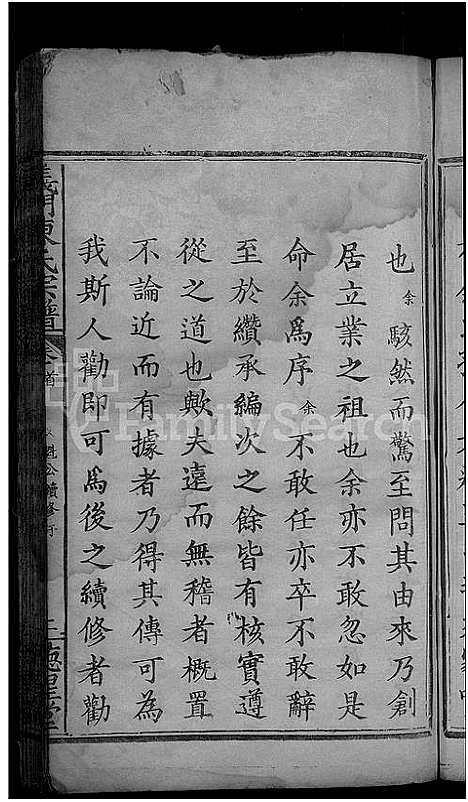 也余駭然而驚至問其由來乃創
居立業之祖也余亦不敢忽如是
命余為序余不敢任亦卒不敢辭
至於纘承編次之餘皆有核實遵
從之道也歟夫遠而無稽者概置
不論近而有據者乃得其傳可為
我斯人勸即可為後之續修者勸
義門陳氏宗譜 卷首
三 德星堂
FamilySearch